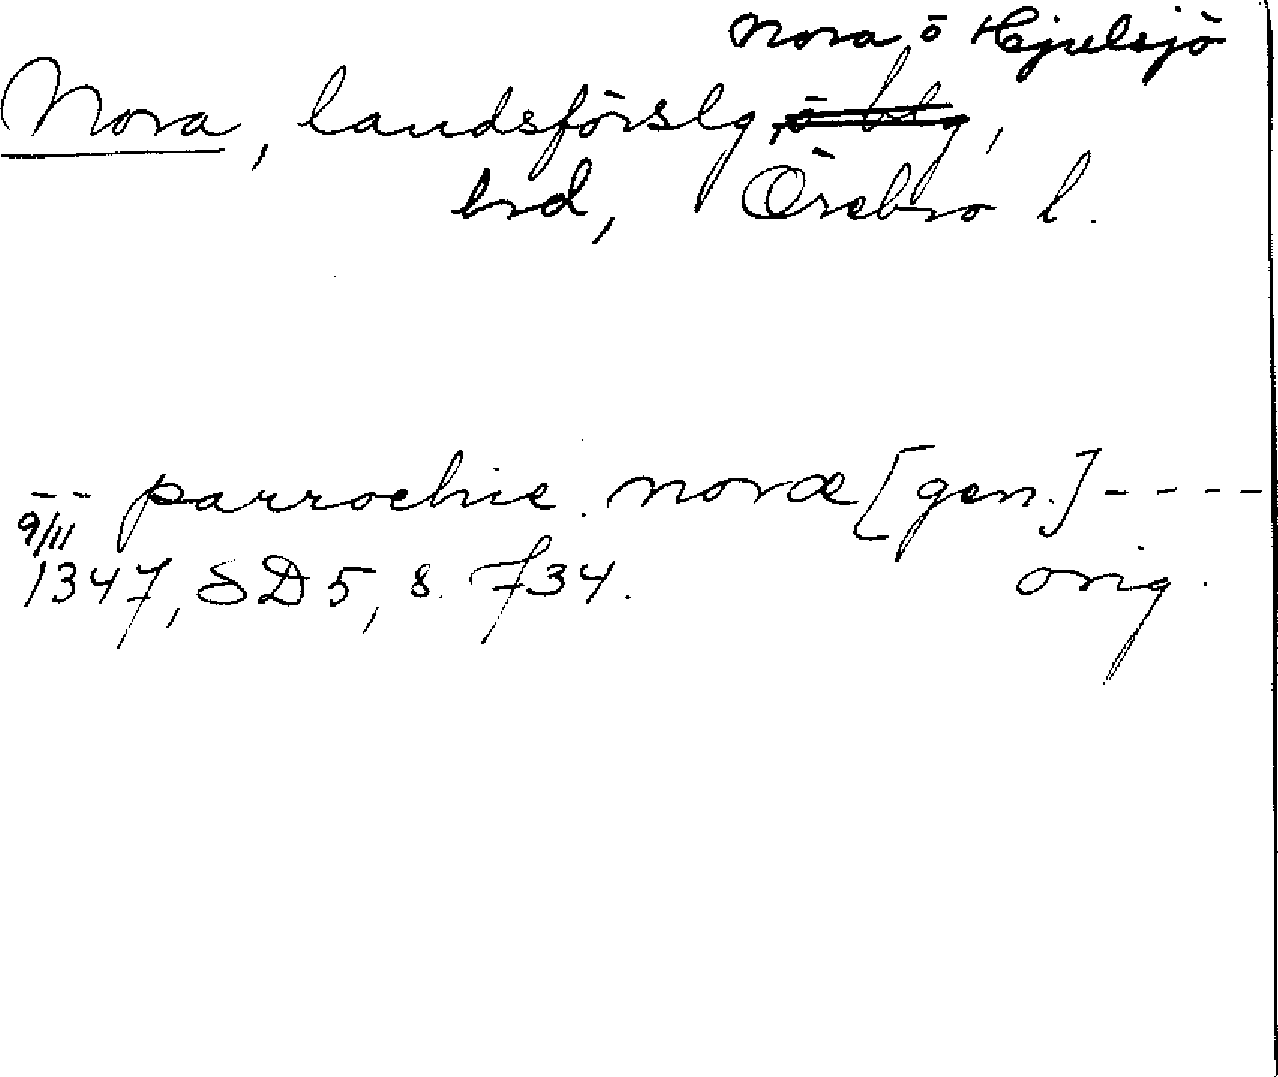 Nora o Hjulsjö
Nora, landsförslg, o bg,
brd, Örebro l.
-- parrochie noræ [gen.] ----
9/11
1347, SD 5, s. 734. orig.